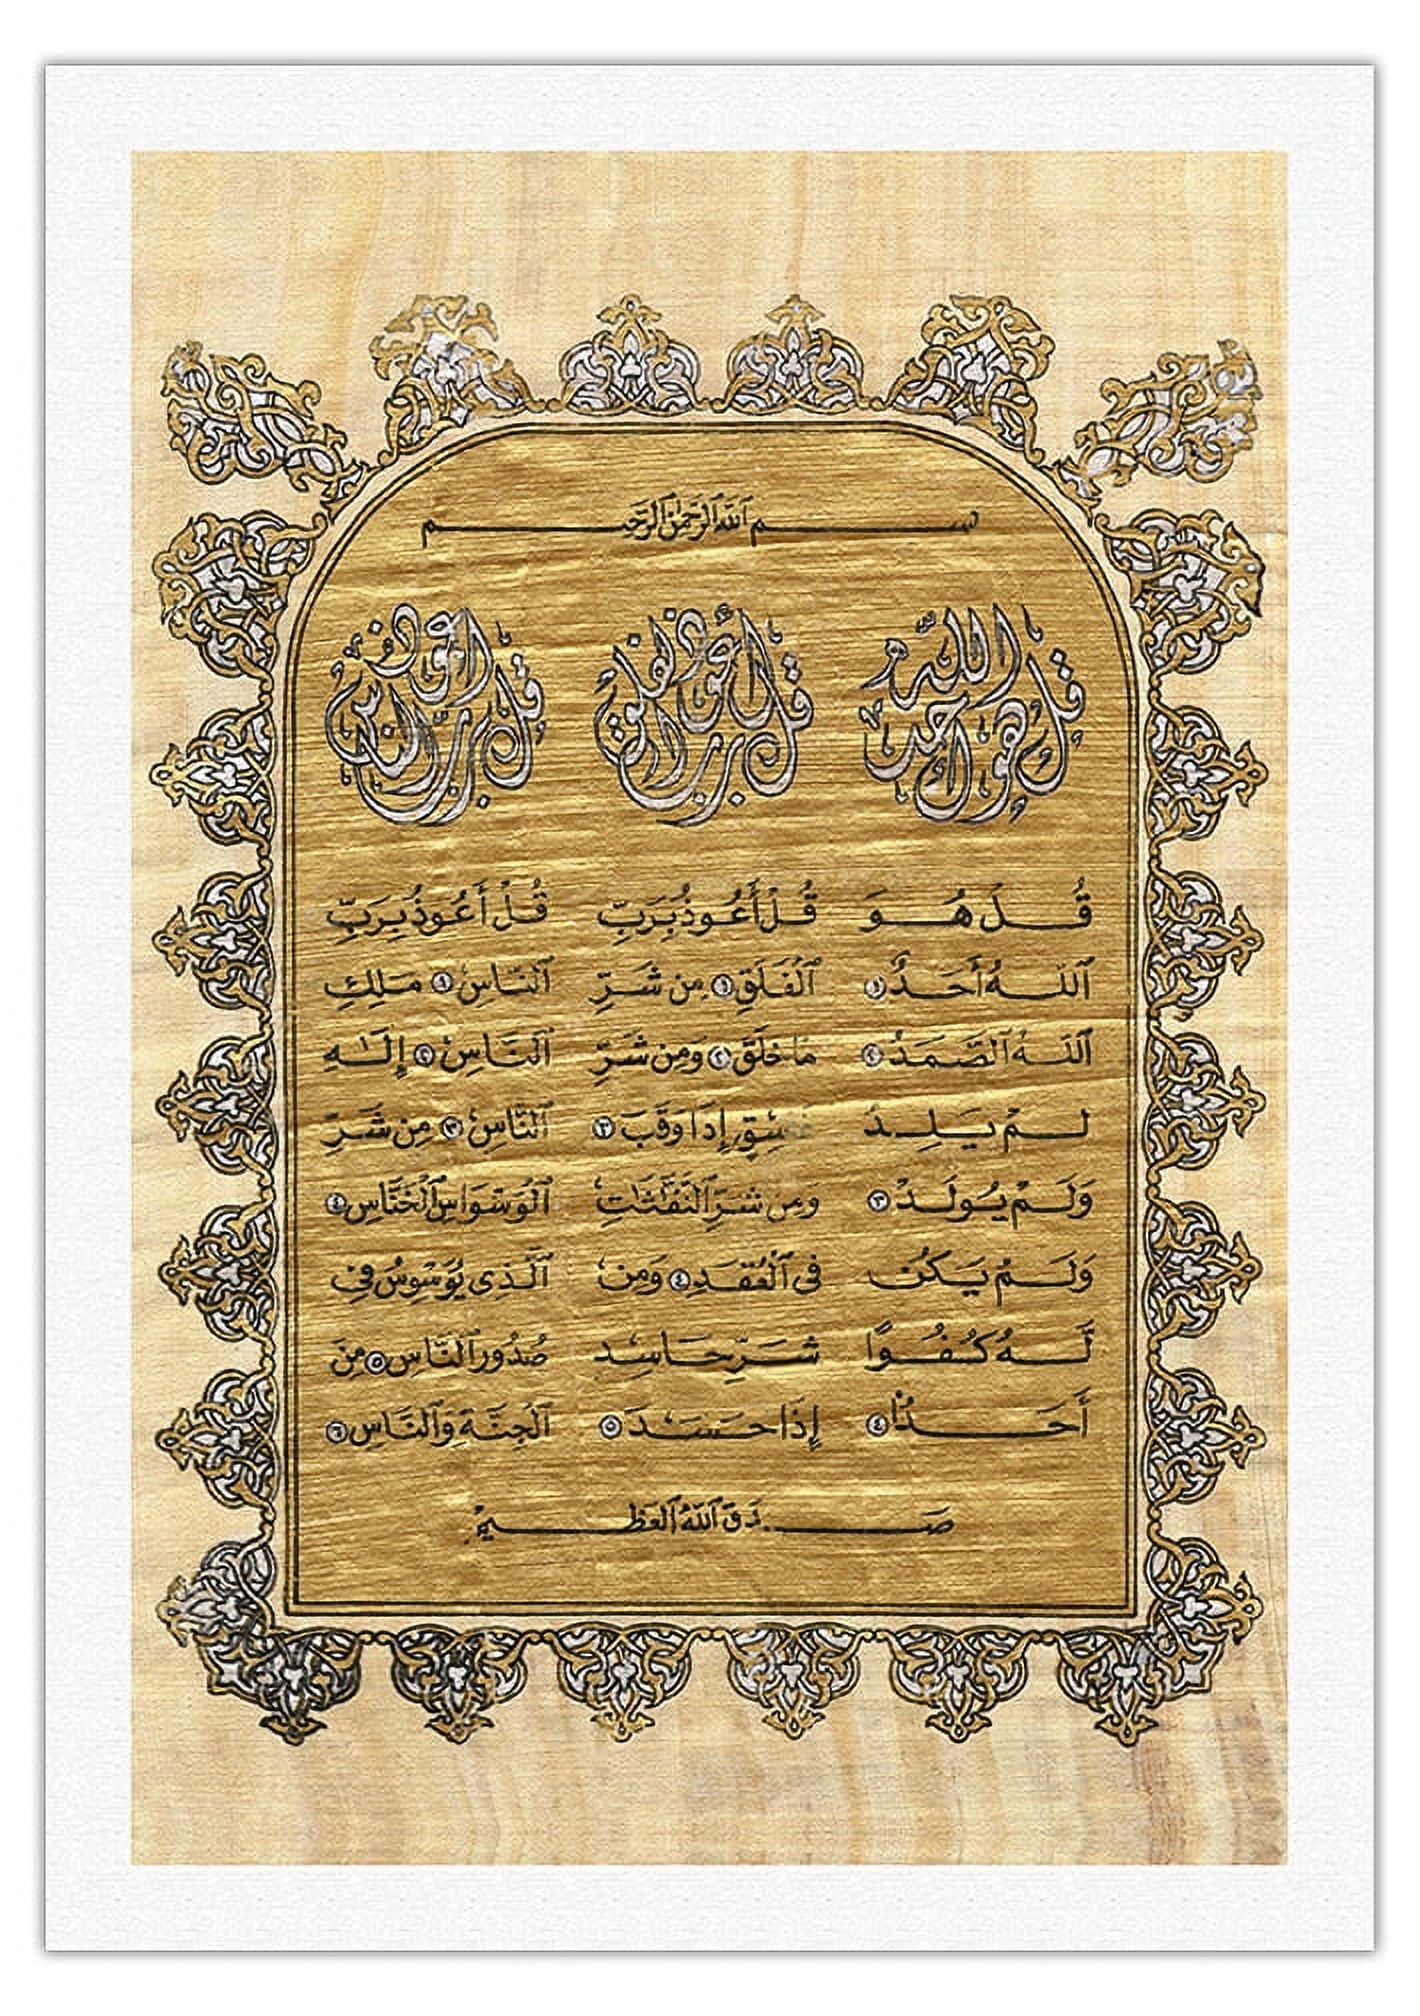 بِسْمِ ٱللَّهِ ٱلرَّحْمَٰنِ ٱلرَّحِيمِ
قل هو الله أحد
قل أعوذ برب الفلق
قل أعوذ برب الناس
قُلْ هُوَ
ٱللَّهُ أَحَدٌ ١
ٱللَّهُ ٱلصَّمَدُ ٢
لَمْ يَلِدْ
وَلَمْ يُولَدْ ٣
وَلَمْ يَكُن
لَّهُ كُفُوًا
أَحَدٌۢ ٤
قُلْ أَعُوذُ بِرَبِّ
ٱلْفَلَقِ ١ مِن شَرِّ
مَا خَلَقَ ٢ وَمِن شَرِّ
إِذَا وَقَبَ ٣
وَمِن شَرِّ ٱلنَّفَّٰثَٰتِ
فِى ٱلْعُقَدِ ٤ وَمِن
شَرِّ حَاسِدٍ
إِذَا حَسَدَ ٥
قُلْ أَعُوذُ بِرَبِّ
ٱلنَّاسِ ١ مَلِكِ
ٱلنَّاسِ ٢ إِلَٰهِ
ٱلنَّاسِ ٣ مِن شَرِّ
ٱلْوَسْوَاسِ ٱلْخَنَّاسِ ٤
ٱلَّذِى يُوَسْوِسُ فِى
صُدُورِ ٱلنَّاسِ ٥ مِنَ
ٱلْجِنَّةِ وَٱلنَّاسِ ٦
صَدَقَ ٱللَّهُ ٱلْعَظِيمُ